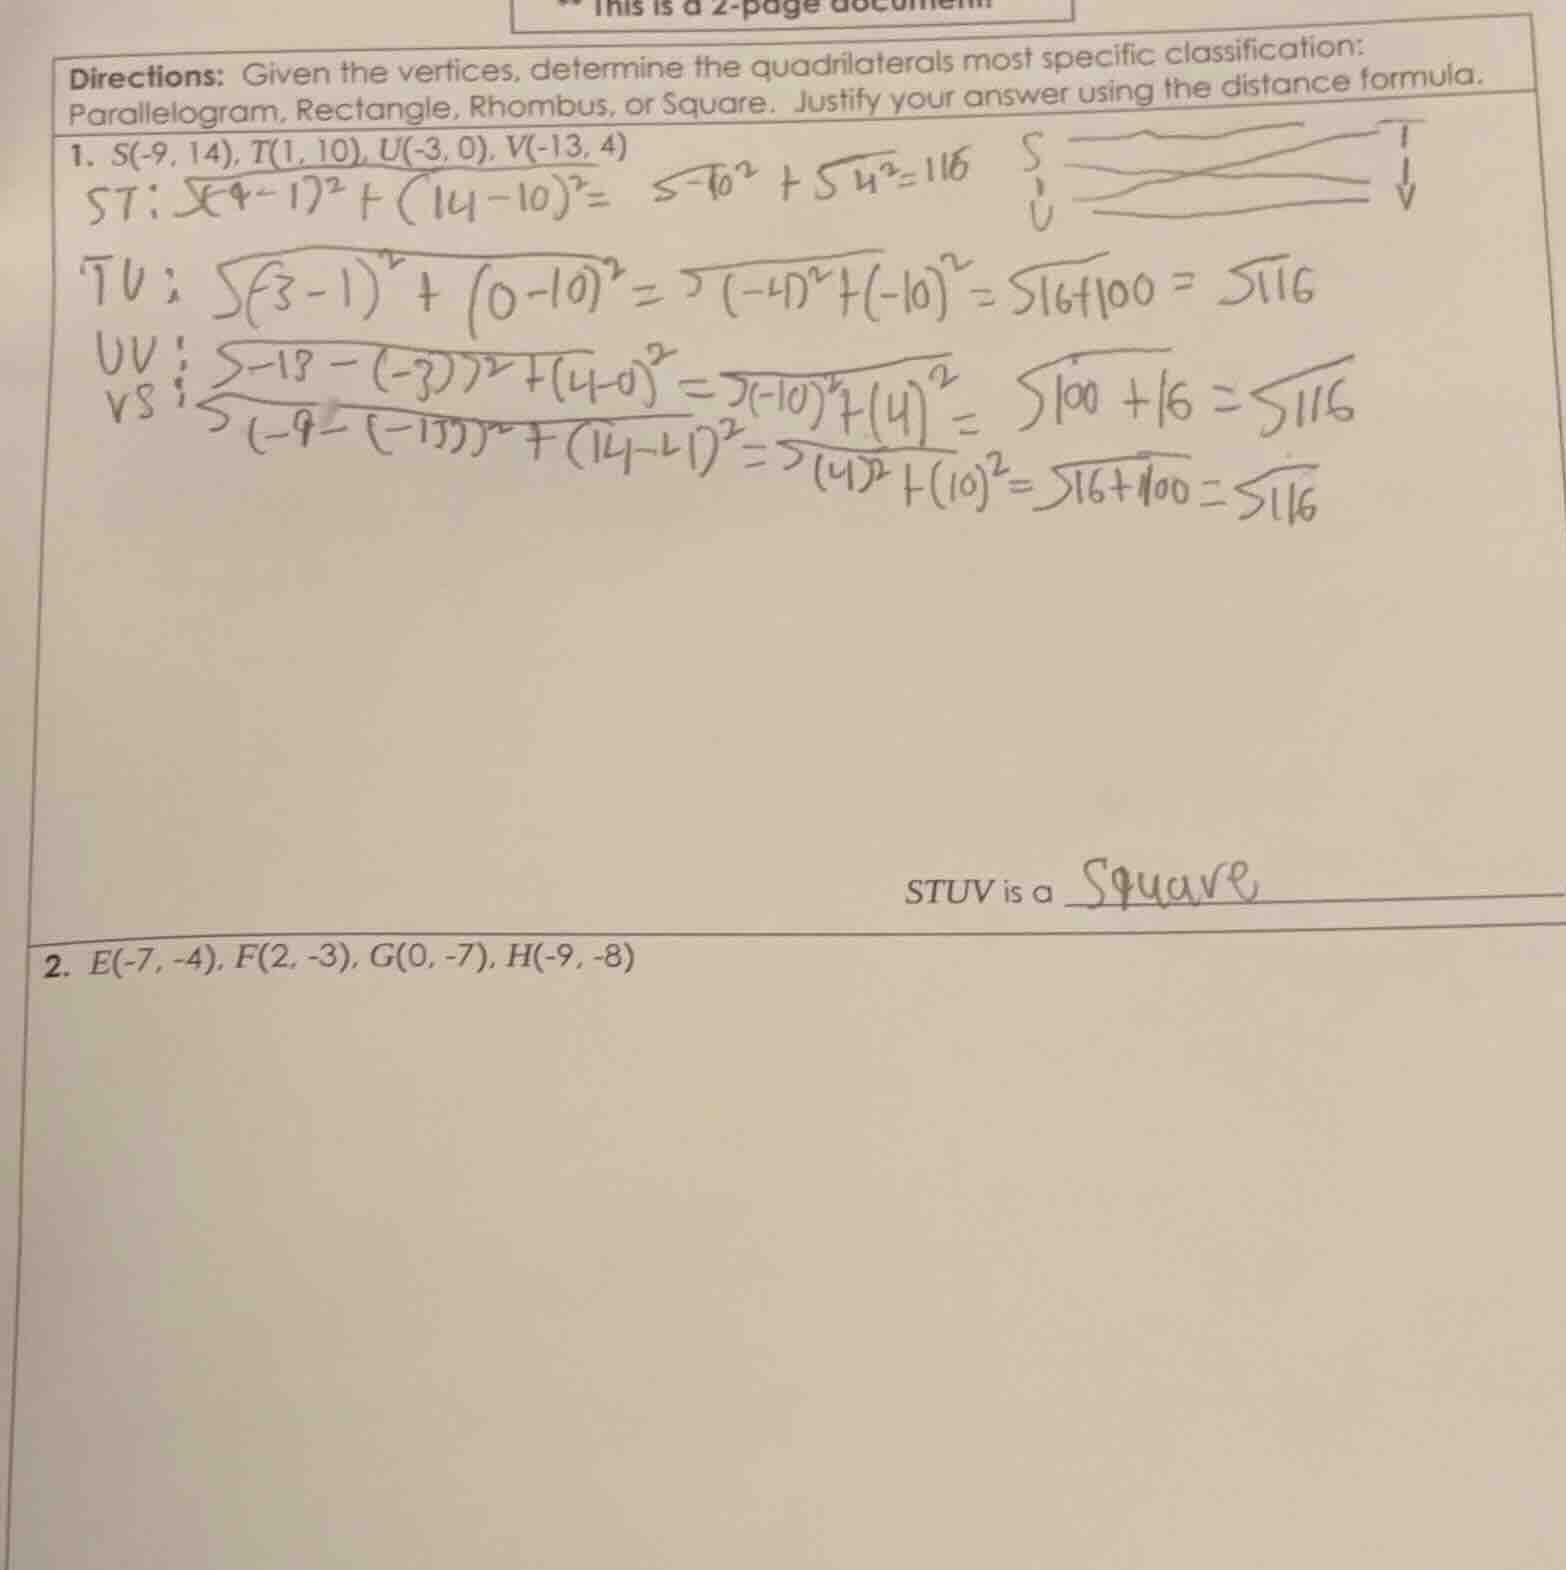 ** This is a 2-page document!
Directions: Given the vertices, determine the quadrilaterals most specific classification:
Parallelogram, Rectangle, Rhombus, or Square. Justify your answer using the distance formula.
1. S(-9, 14), T(1, 10), U(-3, 0), V(-13, 4)
ST: √(-9-1)² + (14-10)² = √-10² + √4² = 116
S T
U V
TU: √(-3-1)² + (0-10)² = √(-4)² + (-10)² = √16+100 = √116
UV: √-13-(-3))² + (4-0)² = √(-10)² + (4)² = √100 + 16 = √116
VS: √(-9-(-13))² + (14-4)² = √(4)² + (10)² = √16+100 = √116
STUV is a Square
2. E(-7, -4), F(2, -3), G(0, -7), H(-9, -8)